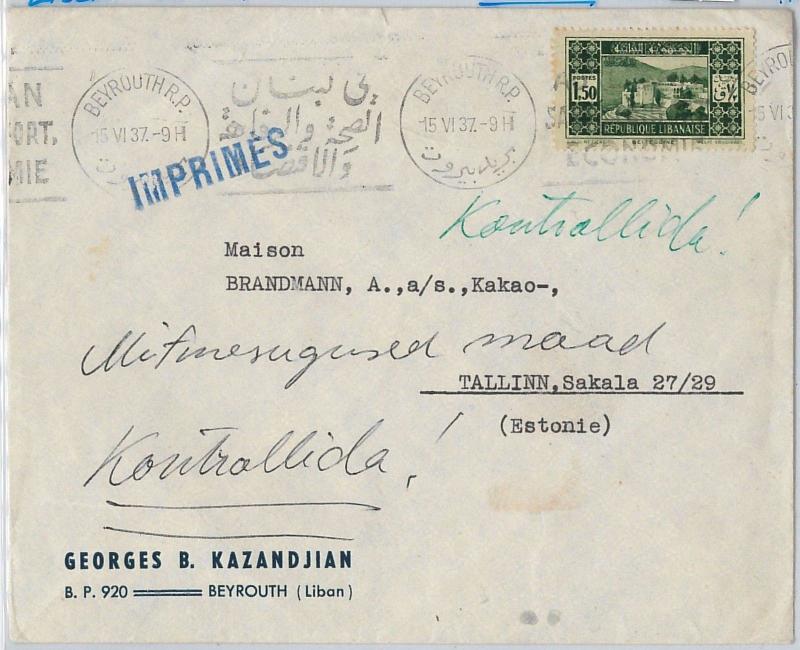 BEYROUTH R.P.
15 VI 37.-9H
بريد بيروت
في لبنان
BEYROUTH R.P.
15 VI 37.-9H
بريد بيروت
AN
ORT,
MIE
ECONOMIE
BEYRO
15 VI 3
POSTES
1.50
REPUBLIQUE LIBANAISE
BEITEDDINE
IMPRIMÉS
Kontrollida!
Maison
BRANDMANN, A.,a/s.,Kakao-,
Mitmesugused maad
TALLINN,Sakala 27/29
(Estonie)
Kontrollida!
GEORGES B. KAZANDJIAN
B. P. 920 BEYROUTH (Liban)